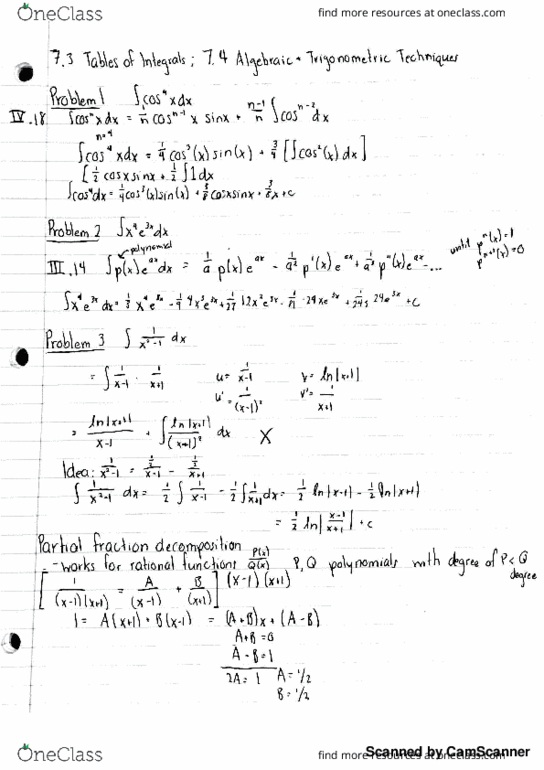 OneClass
find more resources at oneclass.com
7.3 Tables of Integrals; 7.4 Algebraic + Trigonometric Techniques
Problem 1 ∫cos⁴xdx
IV.18 ∫cosⁿxdx = 1/n cosⁿ⁻¹x sinx + n-1/n ∫cosⁿ⁻²dx
n=4
∫cos⁴xdx = 1/4 cos³(x)sin(x) + 3/4 [∫cos²(x)dx]
[1/2 cosxsinx + 1/2 ∫1dx
∫cos⁴dx = 1/4cos³(x)sin(x) + 3/8 cosxsinx + 3/8x + c
Problem 2 ∫x⁴e³ˣdx
polynomial
until pⁿ(x)=1
pⁿ⁺¹(x)=0
III.14 ∫p(x)eᵃˣdx = 1/a p(x)eᵃˣ - 1/a² p'(x)eᵃˣ + 1/a³ p"(x)eᵃˣ - ...
∫x⁴e³ˣdx = 1/3 x⁴e³ˣ - 1/9 4x³e³ˣ + 1/27 12x²e³ˣ - 24xe³ˣ + 24e³ˣ + c
Problem 3 ∫ 1/x²-1 dx
= ∫ 1/x-1 · 1/x+1 u = 1/x-1 v = ln|x+1|
u' = 1/(x-1)² v' = 1/x+1
= ln|x+1|/x-1 + ∫ ln|x+1|/(x+1)² dx X
Idea: 1/x²-1 = 1/2/x-1 - 1/2/x+1
∫ 1/x²-1 dx = 1/2 ∫ 1/x-1 - 1/2 ∫ 1/x+1 dx = 1/2 ln|x-1| - 1/2 ln|x+1|
= 1/2 ln|x-1/x+1| + c
Partial fraction decomposition
- works for rational functions P(x)/Q(x) P, Q polynomials with degree of P < Q degree
[1/(x-1)(x+1) = A/(x-1) + B/(x+1)] (x-1)(x+1)
1 = A(x+1) + B(x-1) = (A+B)x + (A-B)
A+B=0
A-B=1
2A=1 A=1/2
B=1/2
OneClass
find more resources at oneclass.com
Scanned by CamScanner